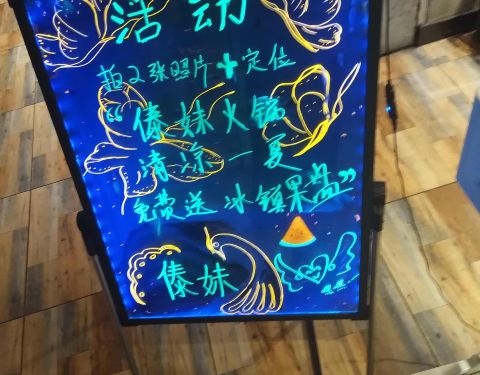 活动
拍2张照片+定位
“傣妹火锅
清凉一夏
免费送 冰镇果盘”
傣妹